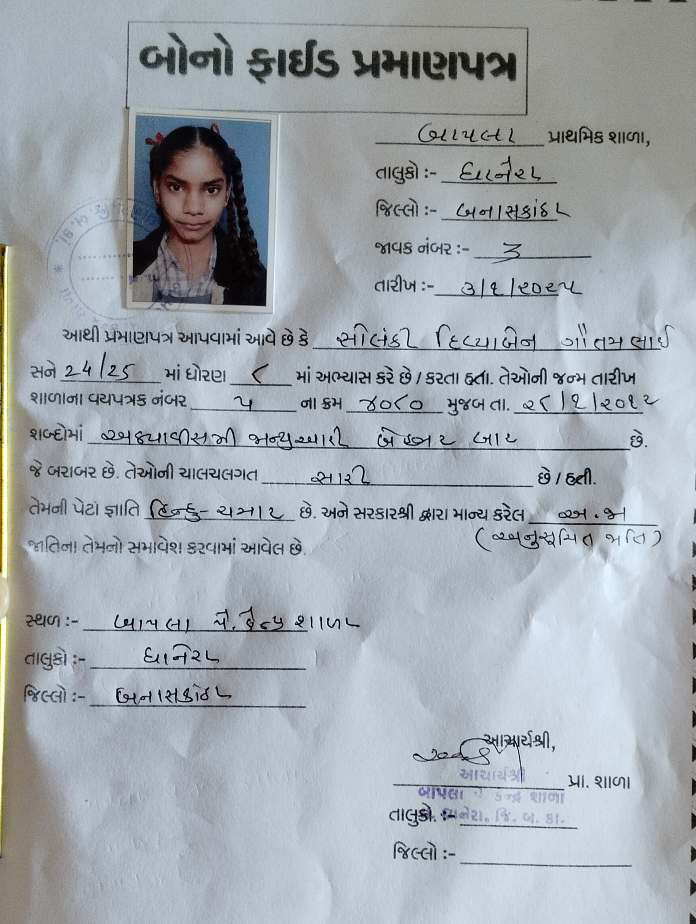 બોનો ફાઈડ પ્રમાણપત્ર
બાપલા પ્રાથમિક શાળા,
તાલુકો :- ધાનેરા
જિલ્લો :- બનાસકાંઠા
જાવક નંબર :- ૩
તારીખ :- ૩/૧/૨૦૨૫
આથી પ્રમાણપત્ર આપવામાં આવે છે કે સોલંકી દિવ્યાબેન ગૌતમભાઈ
સને 24/25 માં ધોરણ ૮ માં અભ્યાસ કરે છે / કરતા હતા. તેઓની જન્મ તારીખ
શાળાના વયપત્રક નંબર ૫ ના ક્રમ ૪૦૮૦ મુજબ તા. ૨૮/૧/૨૦૧૨
શબ્દોમાં અઠ્યાવીસમી જાન્યુઆરી બે હજાર બાર છે.
જે બરાબર છે. તેઓની ચાલચલગત સારી છે / હતી.
તેમની પેટા જ્ઞાતિ હિન્દુ - ચમાર છે. અને સરકારશ્રી દ્વારા માન્ય કરેલ અ.જા
(અનુસૂચિત જાતિ)
જાતિના તેમનો સમાવેશ કરવામાં આવેલ છે.
સ્થળ :- બાપલા પે. કેન્દ્ર શાળા
તાલુકો :- ધાનેરા
જિલ્લો :- બનાસકાંઠા
આચાર્યશ્રી,
આચાર્યશ્રી
પ્રા. શાળા
બાપલા પે કેન્દ્ર શાળા
તાલુકો. :- ધાનેરા, જિ. બ. કાં.
જિલ્લો :-